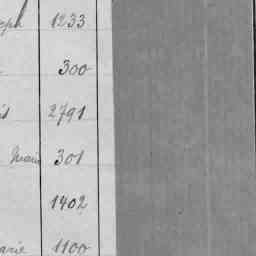 eph 1233
300
is 2791
301
1402
arie 1100